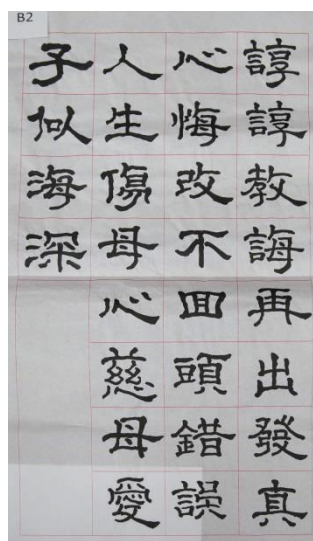 B2
諄諄教誨再出發真
心悔改不回頭錯誤
人生傷母心慈母愛
子似海深